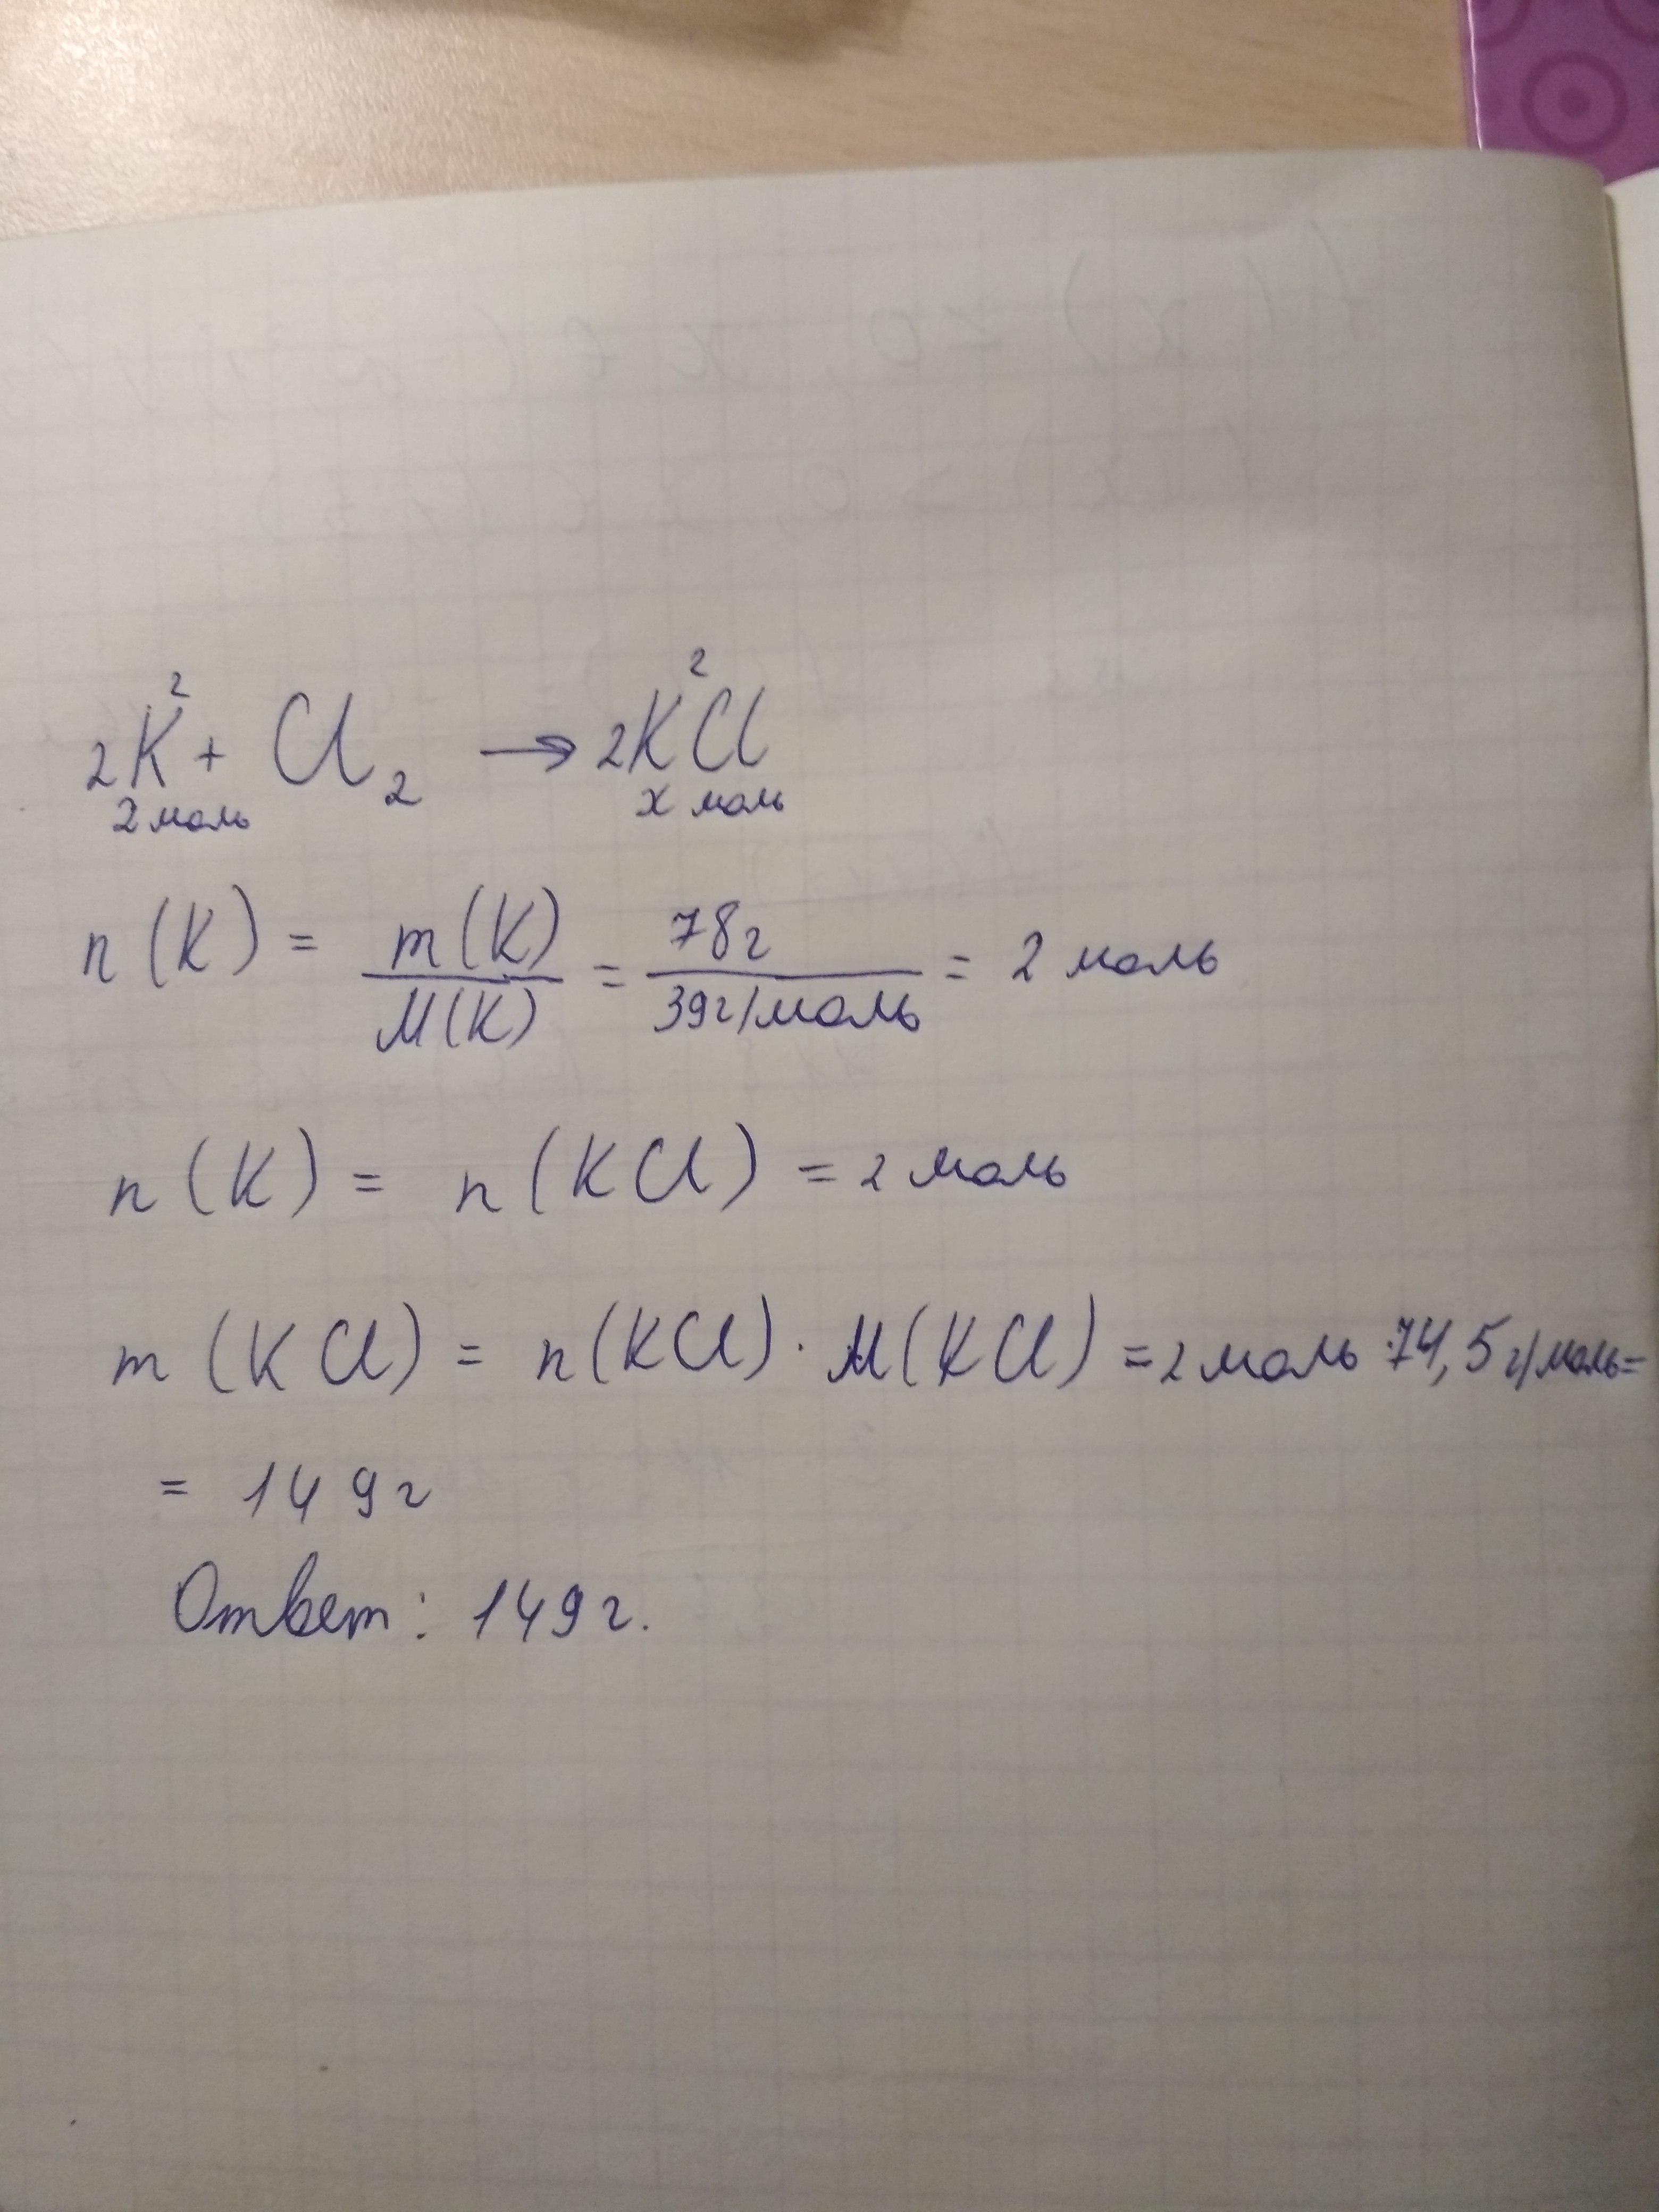 2 2
2K + Cl₂ → 2KCl
2 моль x моль
n (K) = m(K) / M(K) = 78г / 39г/моль = 2 моль
n (K) = n (KCl) = 2 моль
m (KCl) = n(KCl) · M(KCl) = 2 моль · 74,5 г/моль =
= 149 г
Ответ: 149 г.